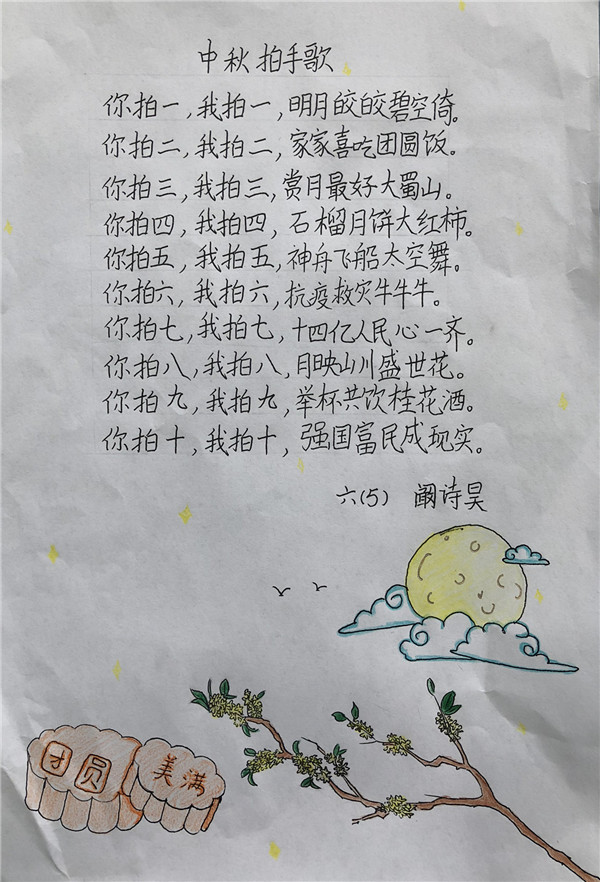 中秋拍手歌
你拍一,我拍一,明月皎皎碧空倚。
你拍二,我拍二,家家喜吃团圆饭。
你拍三,我拍三,赏月最好大蜀山。
你拍四,我拍四,石榴月饼大红柿。
你拍五,我拍五,神舟飞船太空舞。
你拍六,我拍六,抗疫救灾牛牛牛。
你拍七,我拍七,十四亿人民心一齐。
你拍八,我拍八,月映山川盛世花。
你拍九,我拍九,举杯共饮桂花酒。
你拍十,我拍十,强国富民成现实。
六(5) 阚诗昊
团圆
美满